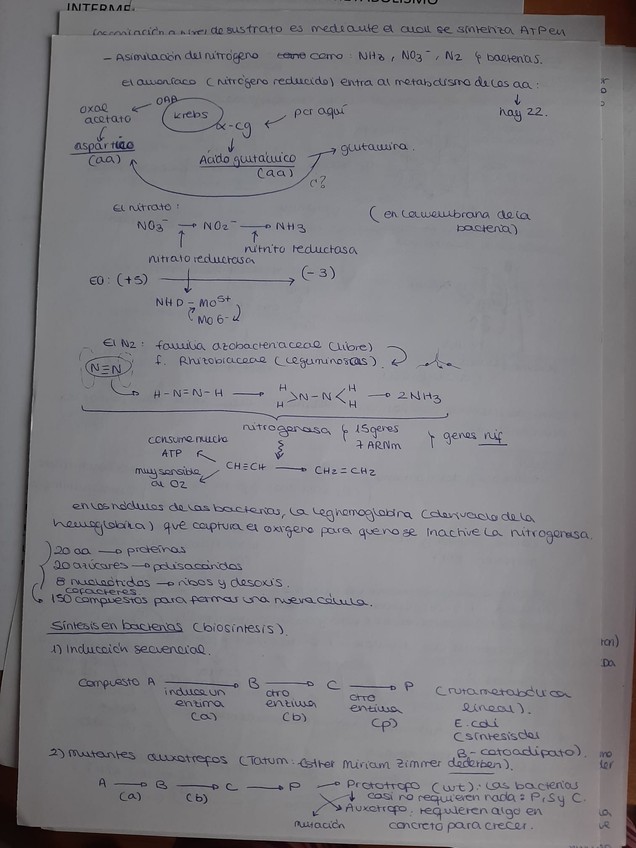 INTERME
METABOLISMO
a nivel de sustrato es mediante el cual se sintetiza ATP en
- Asimilación del nitrógeno como : NH3, NO3⁻, N2 bacterias.
El amoníaco (nitrógeno reducido) entra al metabolismo de los aa:
hay 22.
oxal acetato ← OAA krebs α-cg ← por aquí
aspártico (aa)
Ácido glutámico (aa) → glutamina.
¿?
El nitrato:
NO3⁻ → NO2⁻ → NH3 (en la membrana de la bacteria)
nitrato reductasa
nitrito reductasa
EO: (+5) → (-3)
NHD - Mo5+
Mo6-
El N2: familia azobacteriaceae (libre)
f. Rhizobiaceae (leguminosas).
N≡N
H-N=N-H → H H >N-N< H H → 2NH3
nitrogenasa 15 genes 7 ARNm genes nif
consume mucho ATP
muy sensible al O2
CH≡CH → CH2=CH2
en los nódulos de las bacterias, la leghemoglobina (derivada de la
hemoglobina) que captura el oxígeno para que no se inactive la nitrogenasa.
20 aa → proteínas
20 azúcares → polisacáridos
8 nucleótidos → ribos y desoxis.
cofactores
150 compuestos para formar una nueva célula.
Síntesis en bacterias (biosíntesis).
1) Inducción secuencial.
Compuesto A → B → C → P (ruta metabólica lineal).
induce un enzima (a)
otro enzima (b)
otro enzima (p)
E. coli
(síntesis del β-cetoadipato).
2) Mutantes auxótrofos (Tatum: Esther Miriam Zimmer dederben).
A → B → C → P → Protótrofo (wt): las bacterias
(a) (b)
casi no requieren nada: P, S y C.
Auxótrofo: requieren algo en
mutación
concreto para crecer.